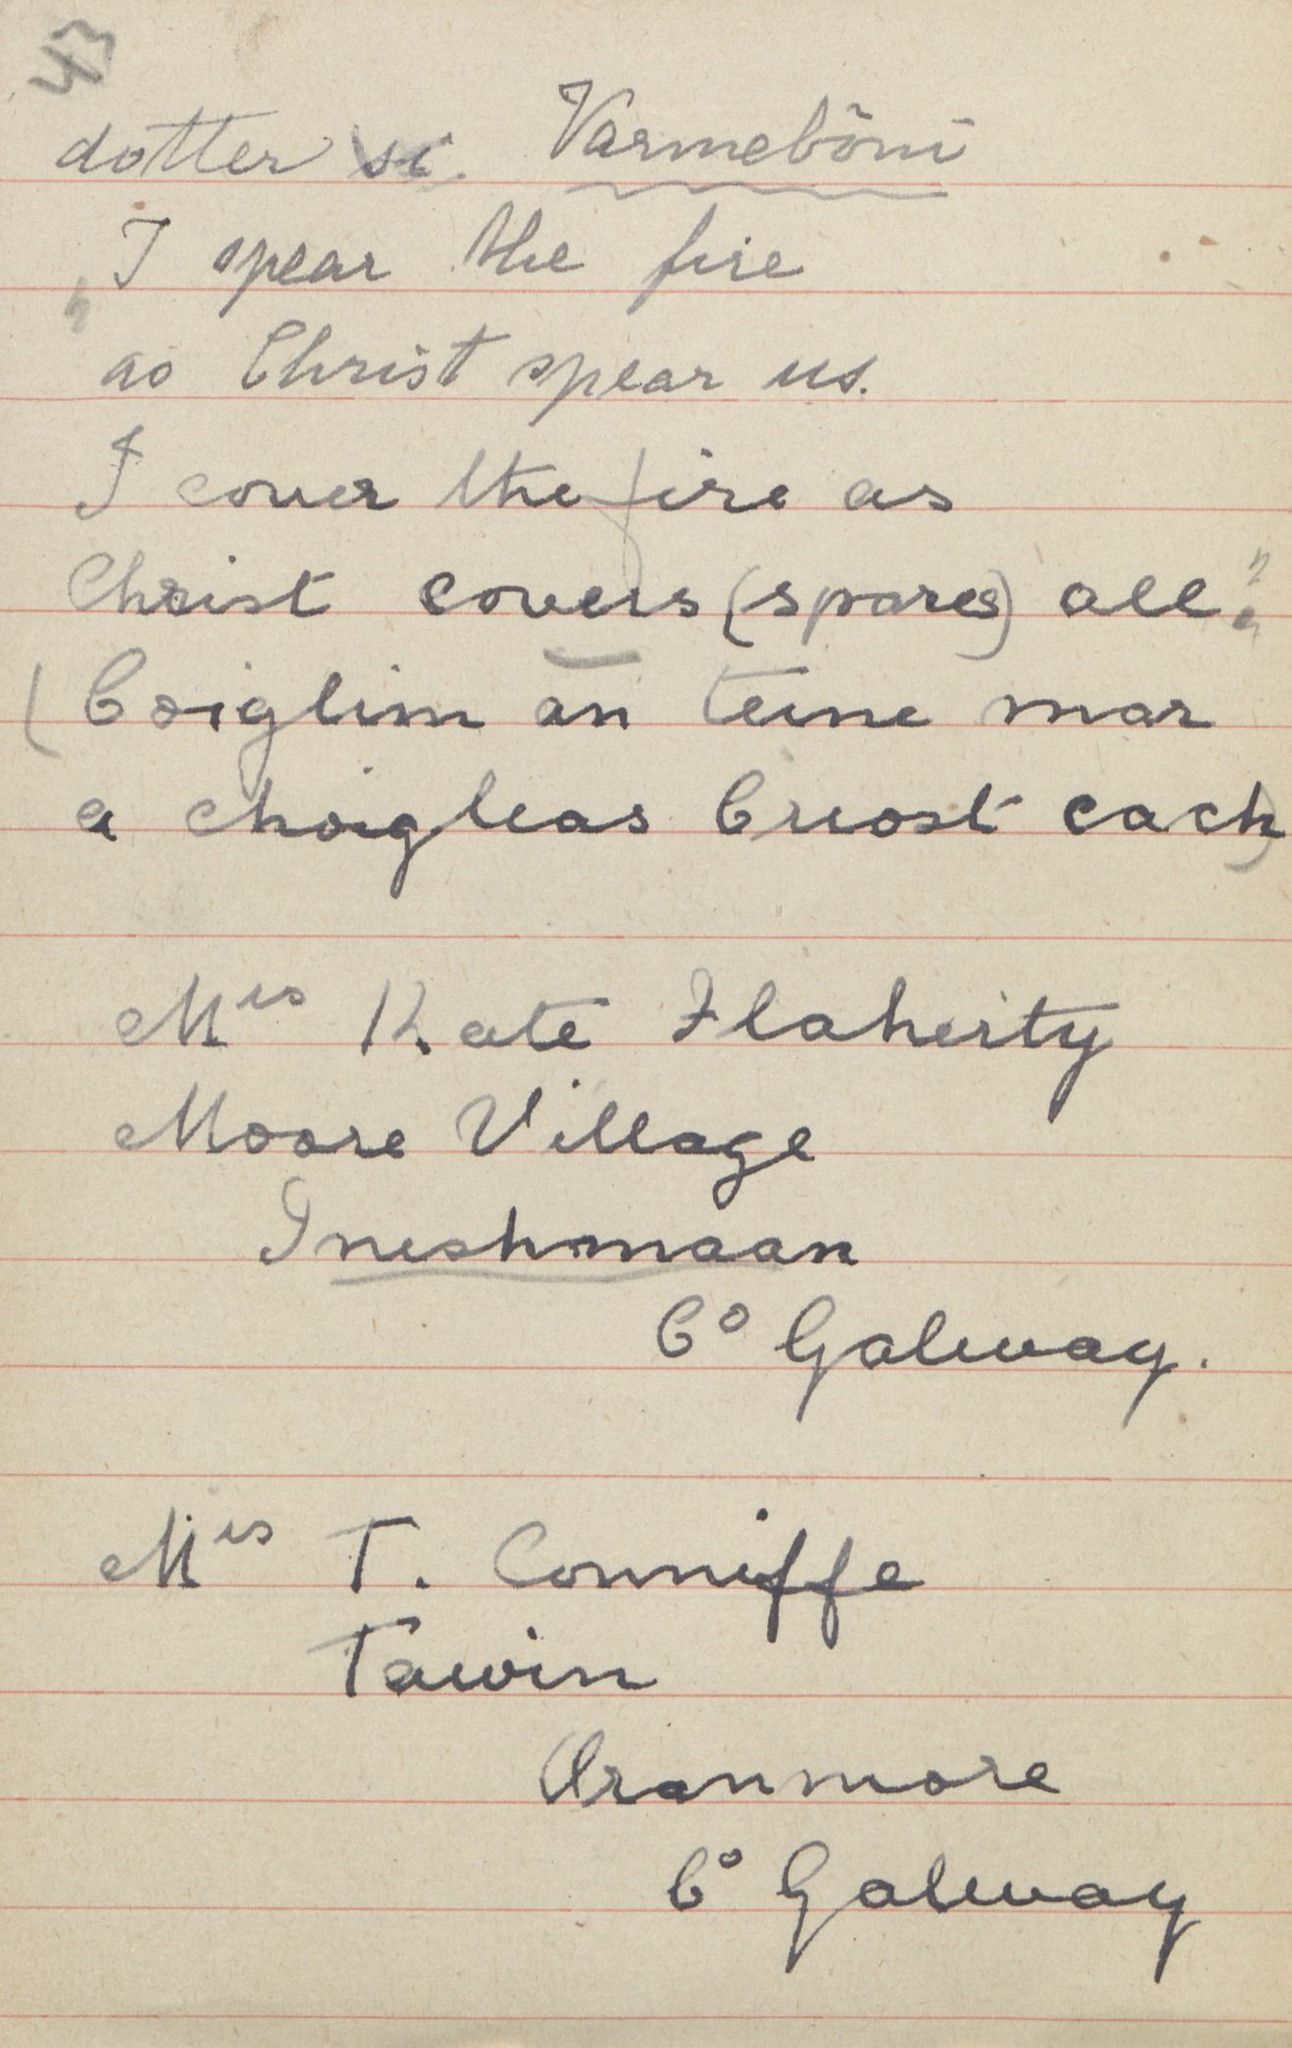 43
dotter si. Varmebönn
"I spear the fire
as Christ spear us.
I cover the fire as
Christ covers (spares) all."
(Coiglim an teine mar
a choigleas Criost cach)
Mrs Kate Flaherty
Moore Village
Inishmaan
Co Galway.
Mrs T. Conniffe
Tawin
Oranmore
Co Galway